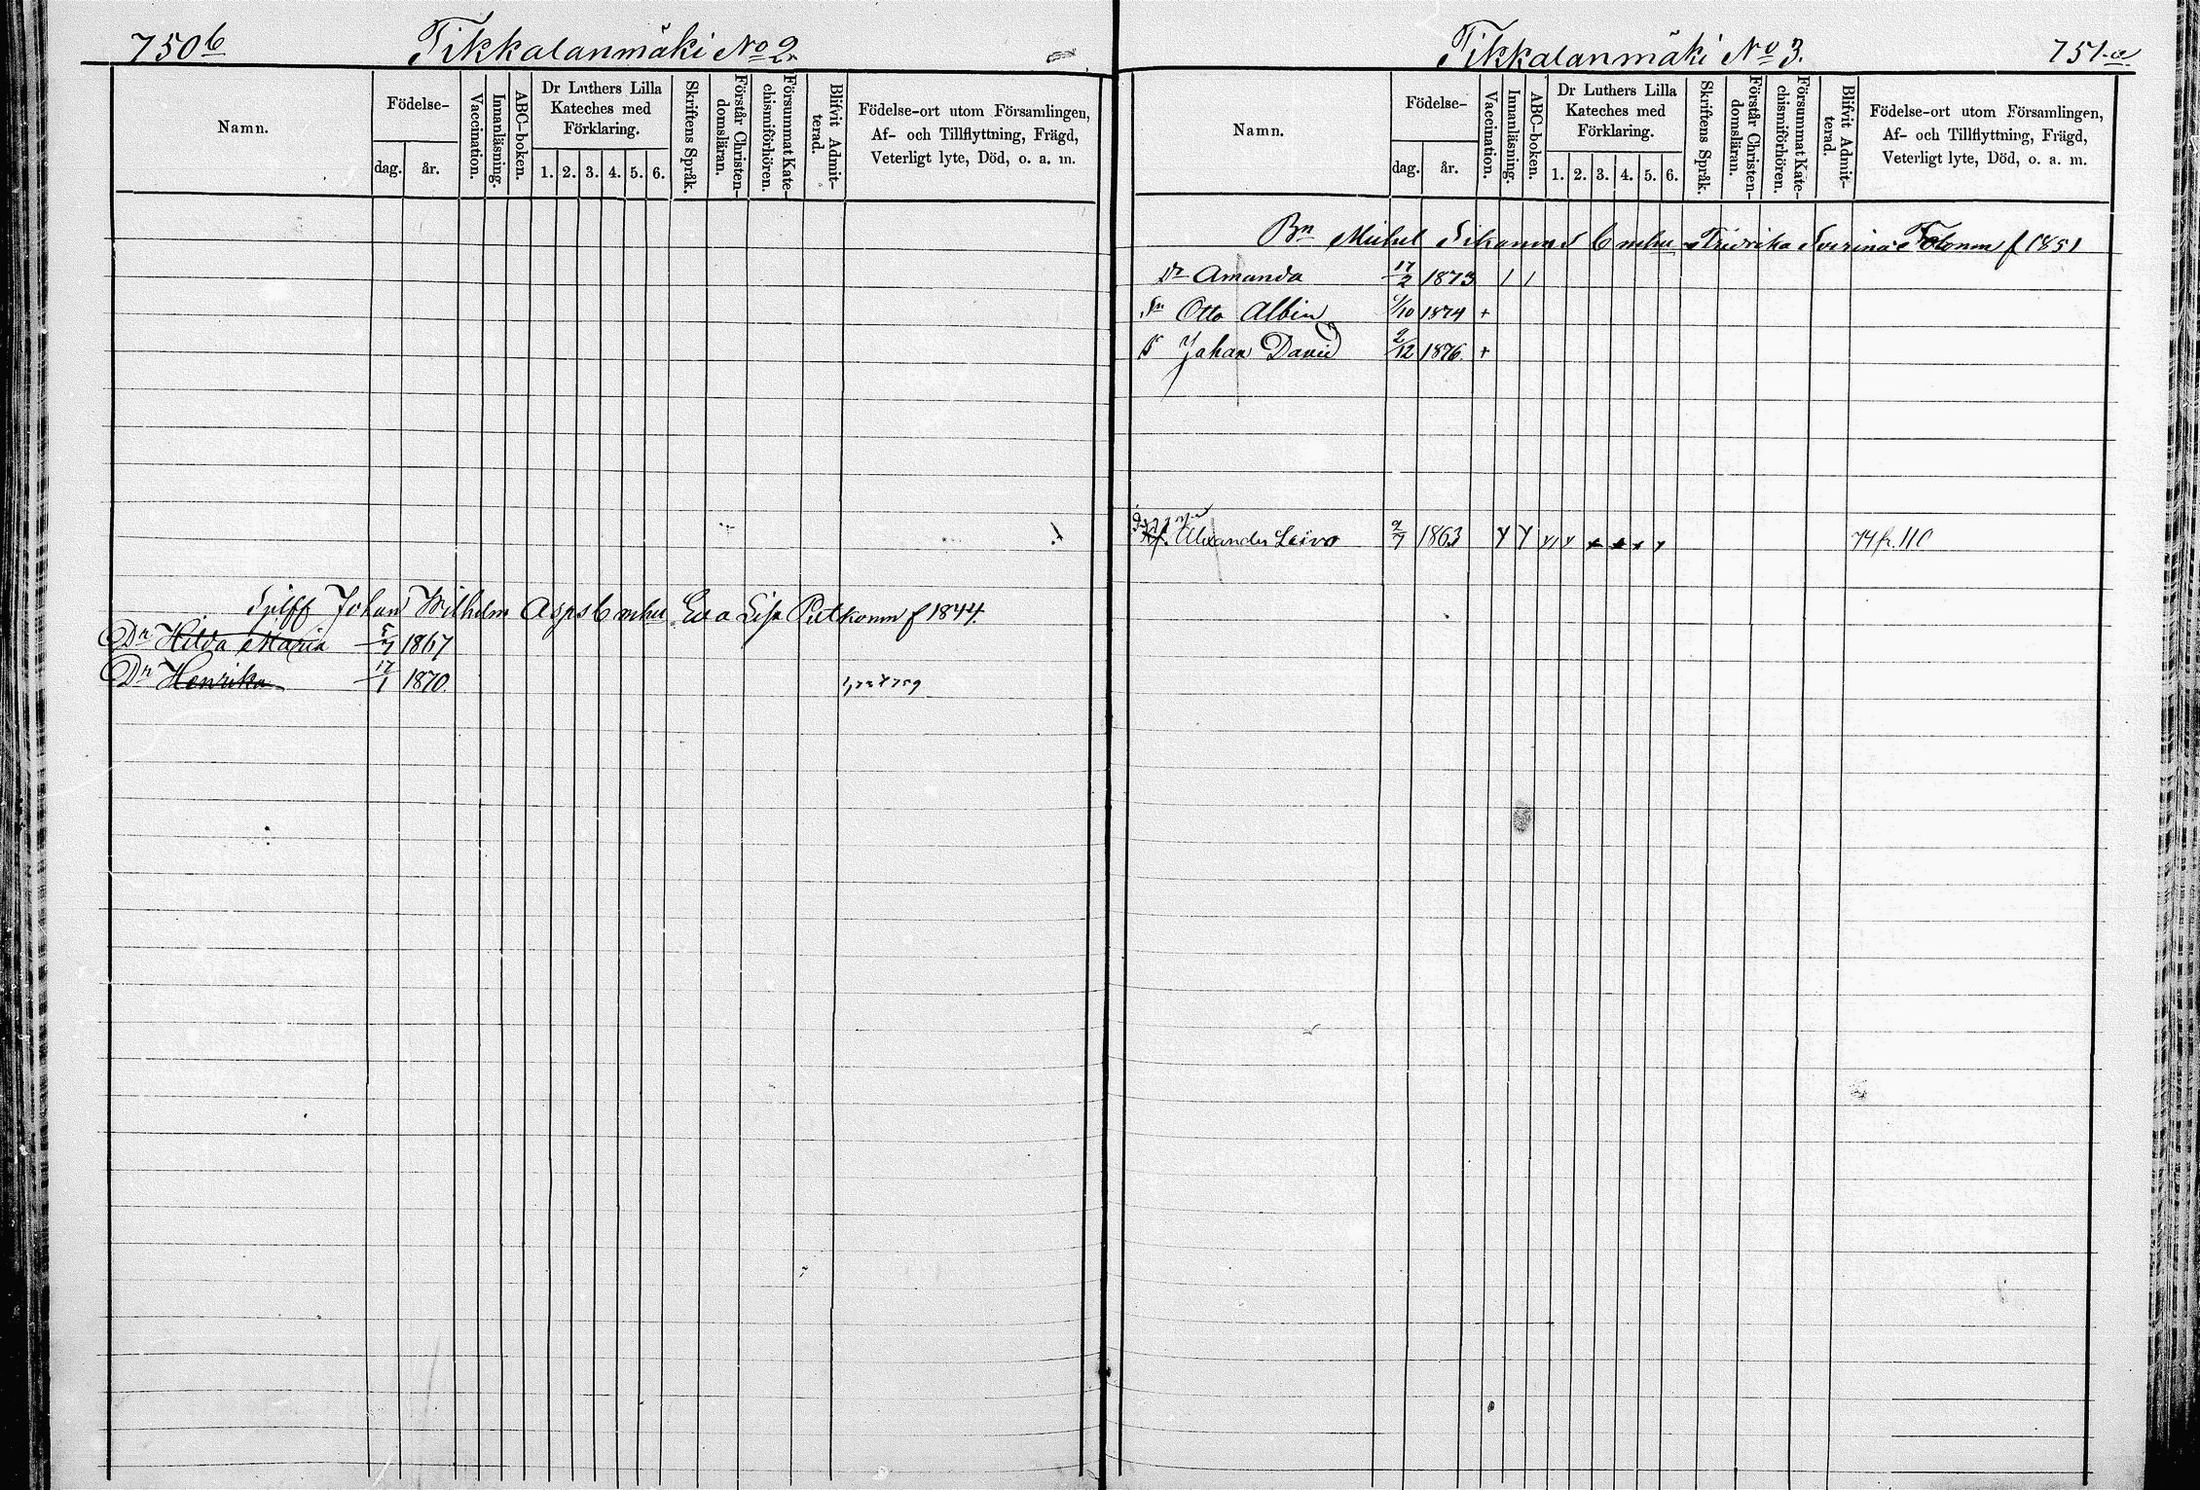 750b Tikkalanmäki No 2.
Namn.
Födelse-
dag. år.
Vaccination.
Innanläsning.
ABC-boken.
Dr Luthers Lilla
Kateches med
Förklaring.
1. 2. 3. 4. 5. 6.
Skriftens Språk.
Förstår Christen-
domsläran.
Försummat Kate-
chismiförhören.
Blifvit Admit-
terad.
Födelse-ort utom Församlingen,
Af- och Tillflyttning, Frägd,
Veterligt lyte, Död, o. a. m.
Johan Wilhelm Asps Eva Lisa f 1844.
Dn Hilda Maria 5/7 1867
Dn Henrika 17/1 1870.
Tikkalanmäki No 3. 751.a.
Namn.
Födelse-
dag. år.
Vaccination.
Innanläsning.
ABC-boken.
Dr Luthers Lilla
Kateches med
Förklaring.
1. 2. 3. 4. 5. 6.
Skriftens Språk.
Förstår Christen-
domsläran.
Försummat Kate-
chismiförhören.
Blifvit Admit-
terad.
Födelse-ort utom Församlingen,
Af- och Tillflyttning, Frägd,
Veterligt lyte, Död, o. a. m.
Bn Michel f 1851
Dr Amanda 17/2 1873
Sn Otto Albin 1874 +
Johan David 2/12 1876 +
Alexander Leivo 1863